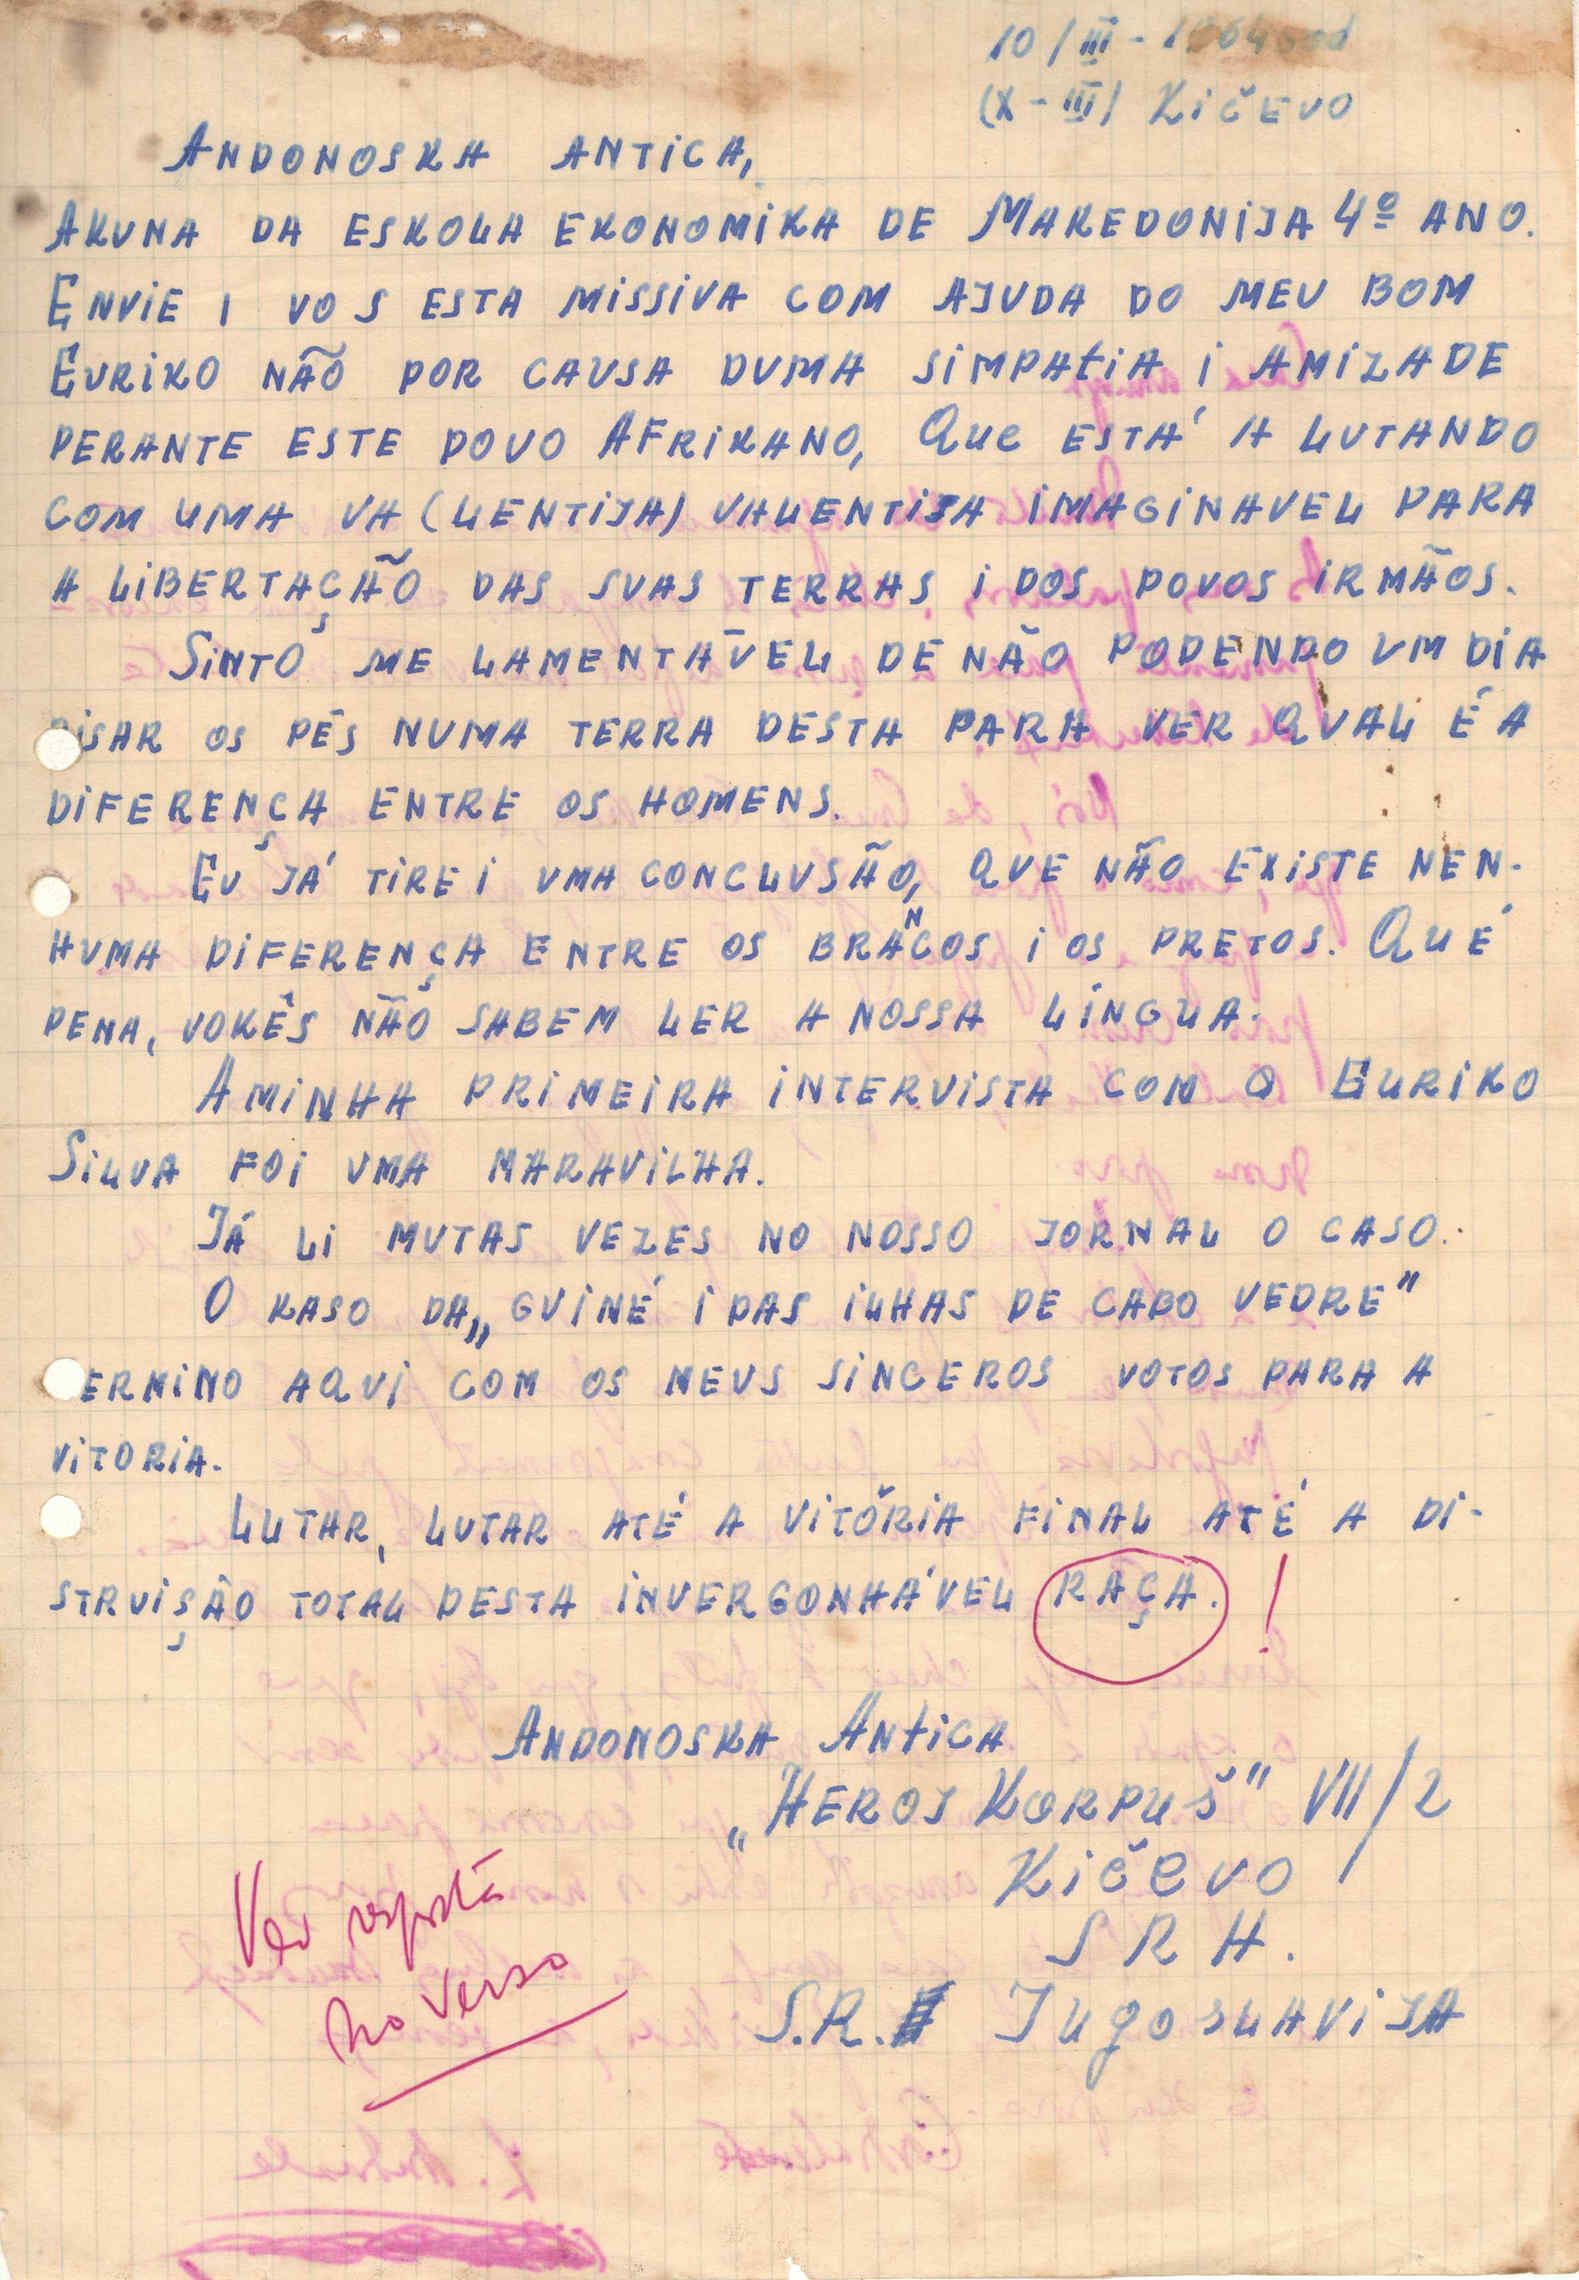 10/III - 1964 god
(X-III) Kičevo
ANDONOSKA ANTICA,
AKUNA DA ESKOLA EKONOMIKA DE MAKEDONIJA 4º ANO.
ENVIE I VOS ESTA MISSIVA COM AJUDA DO MEU BOM
EURIKO NÃO POR CAUSA DUMA SIMPATIA I AMIZADE
PERANTE ESTE POVO AFRIKANO, QUE ESTÁ A LUTANDO
COM UMA VA (LENTIJA) VALENTIJA IMAGINAVEL PARA
A LIBERTAÇÃO DAS SUAS TERRAS I DOS POVOS IRMÃOS.
SINTO ME LAMENTAVEL DE NÃO PODENDO UM DIA
PISAR OS PÉS NUMA TERRA DESTA PARA VER QUAL É A
DIFERENÇA ENTRE OS HOMENS.
EU JÁ TIREI UMA CONCLUSÃO, QUE NÃO EXISTE NEN-
HUMA DIFERENÇA ENTRE OS BRANCOS I OS PRETOS. QUÉ
PENA, VOKÊS NÃO SABEM LER A NOSSA LÍNGUA.
AMINHA PRIMEIRA INTERVISTA COM O EURIKO
SILVA FOI UMA MARAVILHA.
JÁ LI MUTAS VEZES NO NOSSO JORNAL O CASO.
O KASO DA „GUINÉ I DAS ILHAS DE CABO VEDRE"
ERMINO AQUI COM OS MEUS SINCEROS VOTOS PARA A
VITORIA.
LUTAR, LUTAR ATÉ A VITÓRIA FINAL ATÉ A DI-
STRUIÇÃO TOTAL DESTA INVERGONHÁVEL RAÇA. !
ANDONOSKA ANTICA
„HEROJ KORPUŠ" VII/2
Kičevo
S R H.
S.R. JugosLAViJA
Ver resposta
no verso